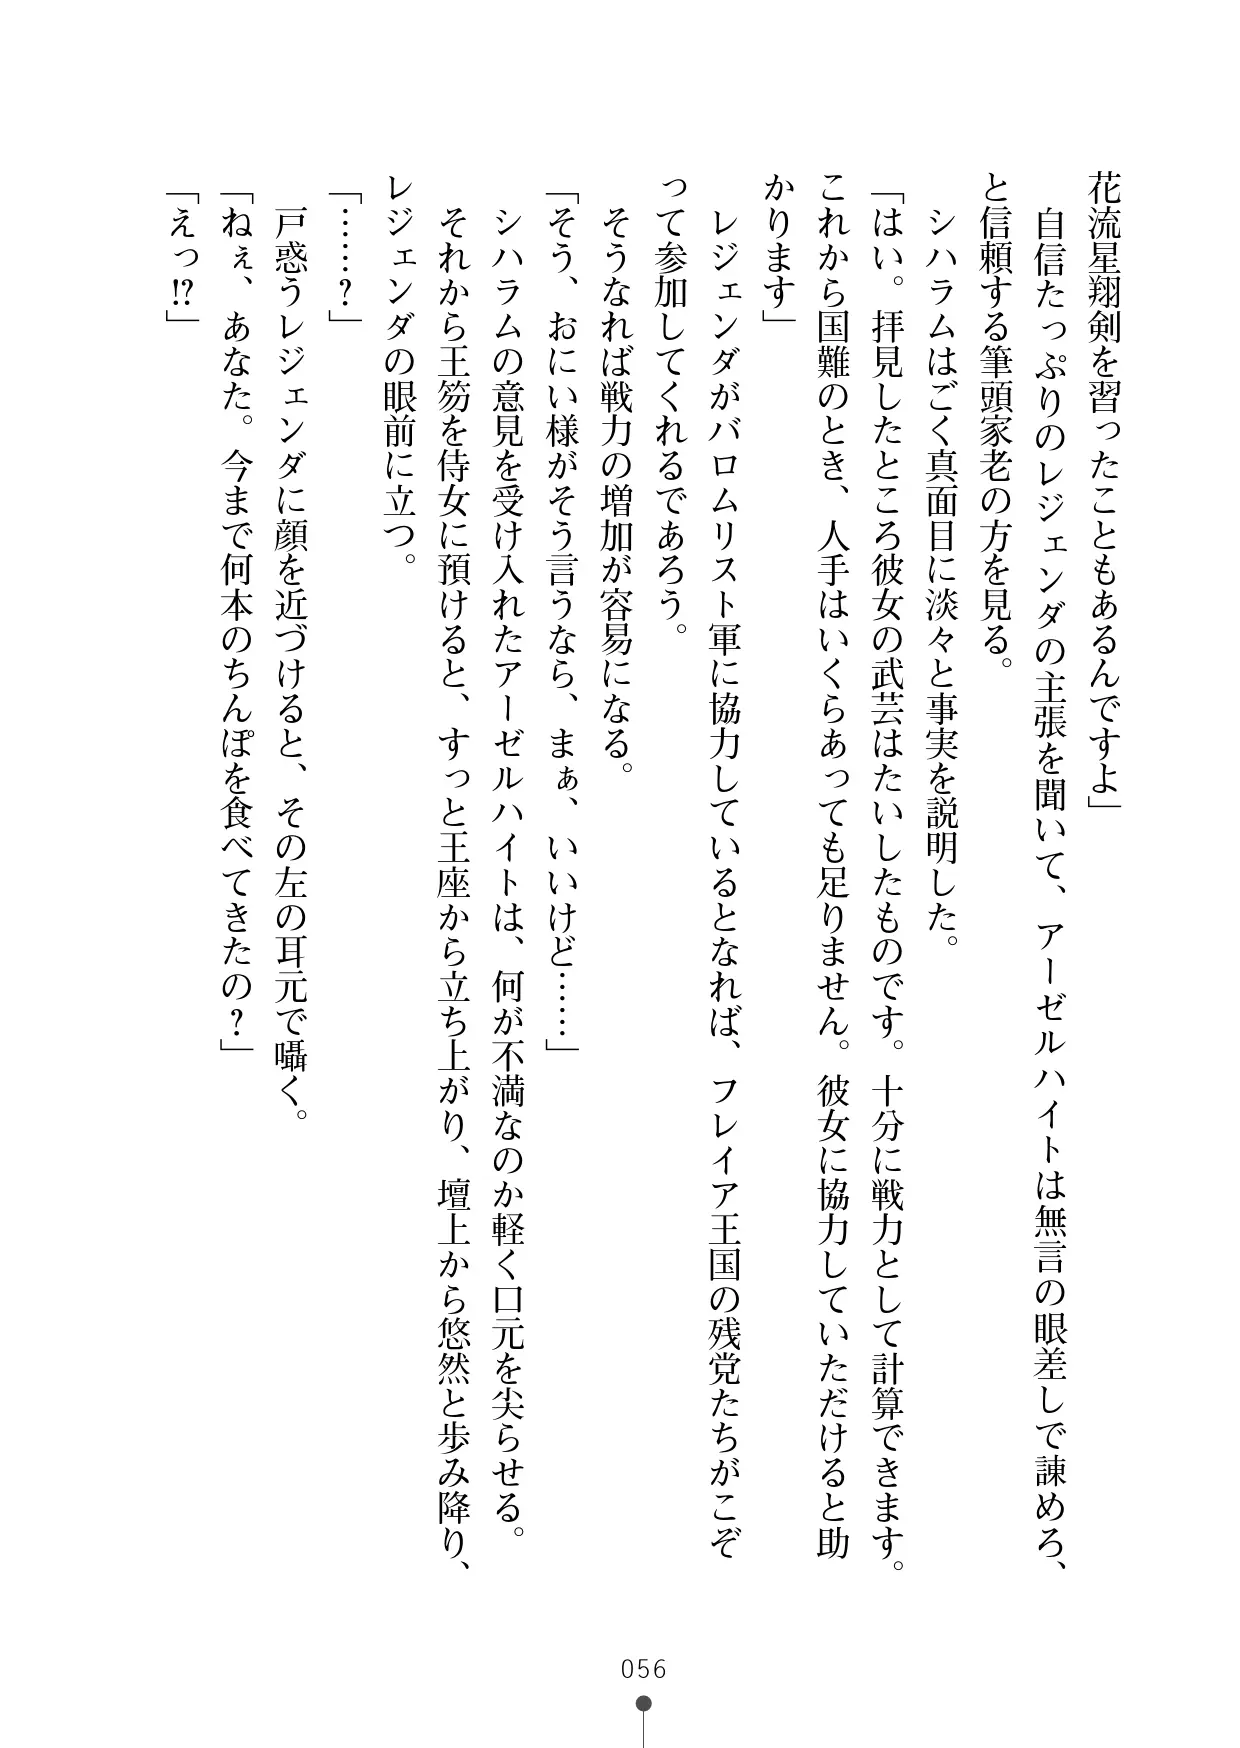 花流星翔剣を習ったこともあるんですよ」
　自信たっぷりのレジェンダの主張を聞いて、アーゼルハイトは無言の眼差しで諌めろ、
と信頼する筆頭家老の方を見る。
　シハラムはごく真面目に淡々と事実を説明した。
「はい。拝見したところ彼女の武芸はたいしたものです。十分に戦力として計算できます。
これから国難のとき、人手はいくらあっても足りません。彼女に協力していただけると助
かります」
　レジェンダがバロムリスト軍に協力しているとなれば、フレイア王国の残党たちがこぞ
って参加してくれるであろう。
　そうなれば戦力の増加が容易になる。
「そう、おにい様がそう言うなら、まぁ、いいけど……」
　シハラムの意見を受け入れたアーゼルハイトは、何が不満なのか軽く口元を尖らせる。
　それから王笏を侍女に預けると、すっと王座から立ち上がり、壇上から悠然と歩み降り、
レジェンダの眼前に立つ。
「……？」
　戸惑うレジェンダに顔を近づけると、その左の耳元で囁く。
「ねぇ、あなた。今まで何本のちんぽを食べてきたの？」
「えっ!?」
056